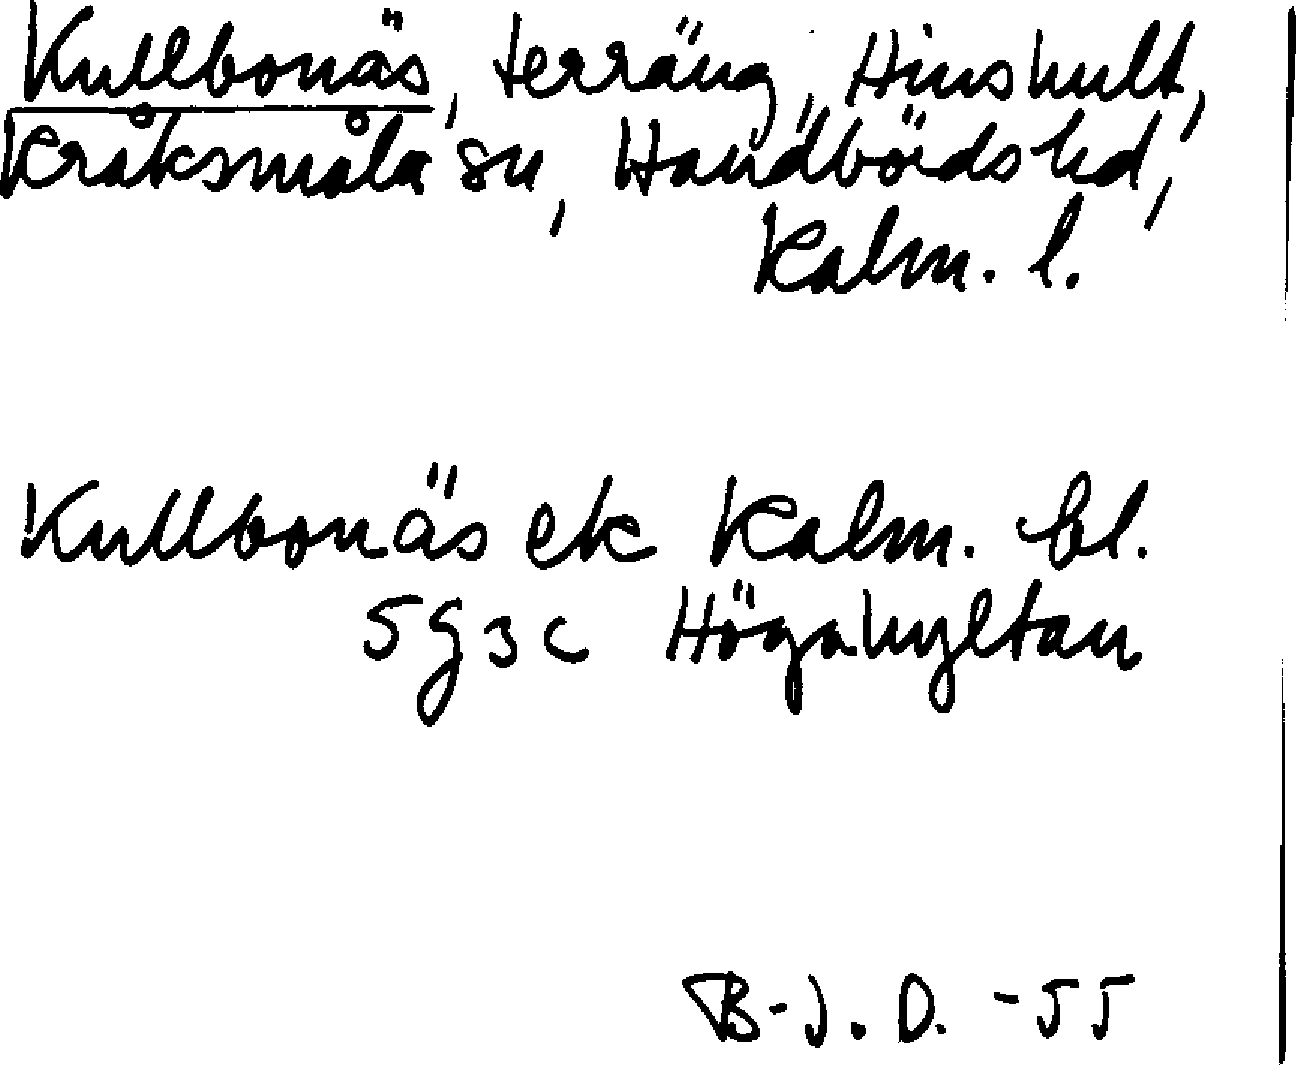 Kullbonäs, terräng, Hinshult,
Kråksmåla sn, Handbörds hd,
Kalm. l.
Kullbonäs ek Kalm. bl.
5g3c Högahyltan
B-J.D. -55